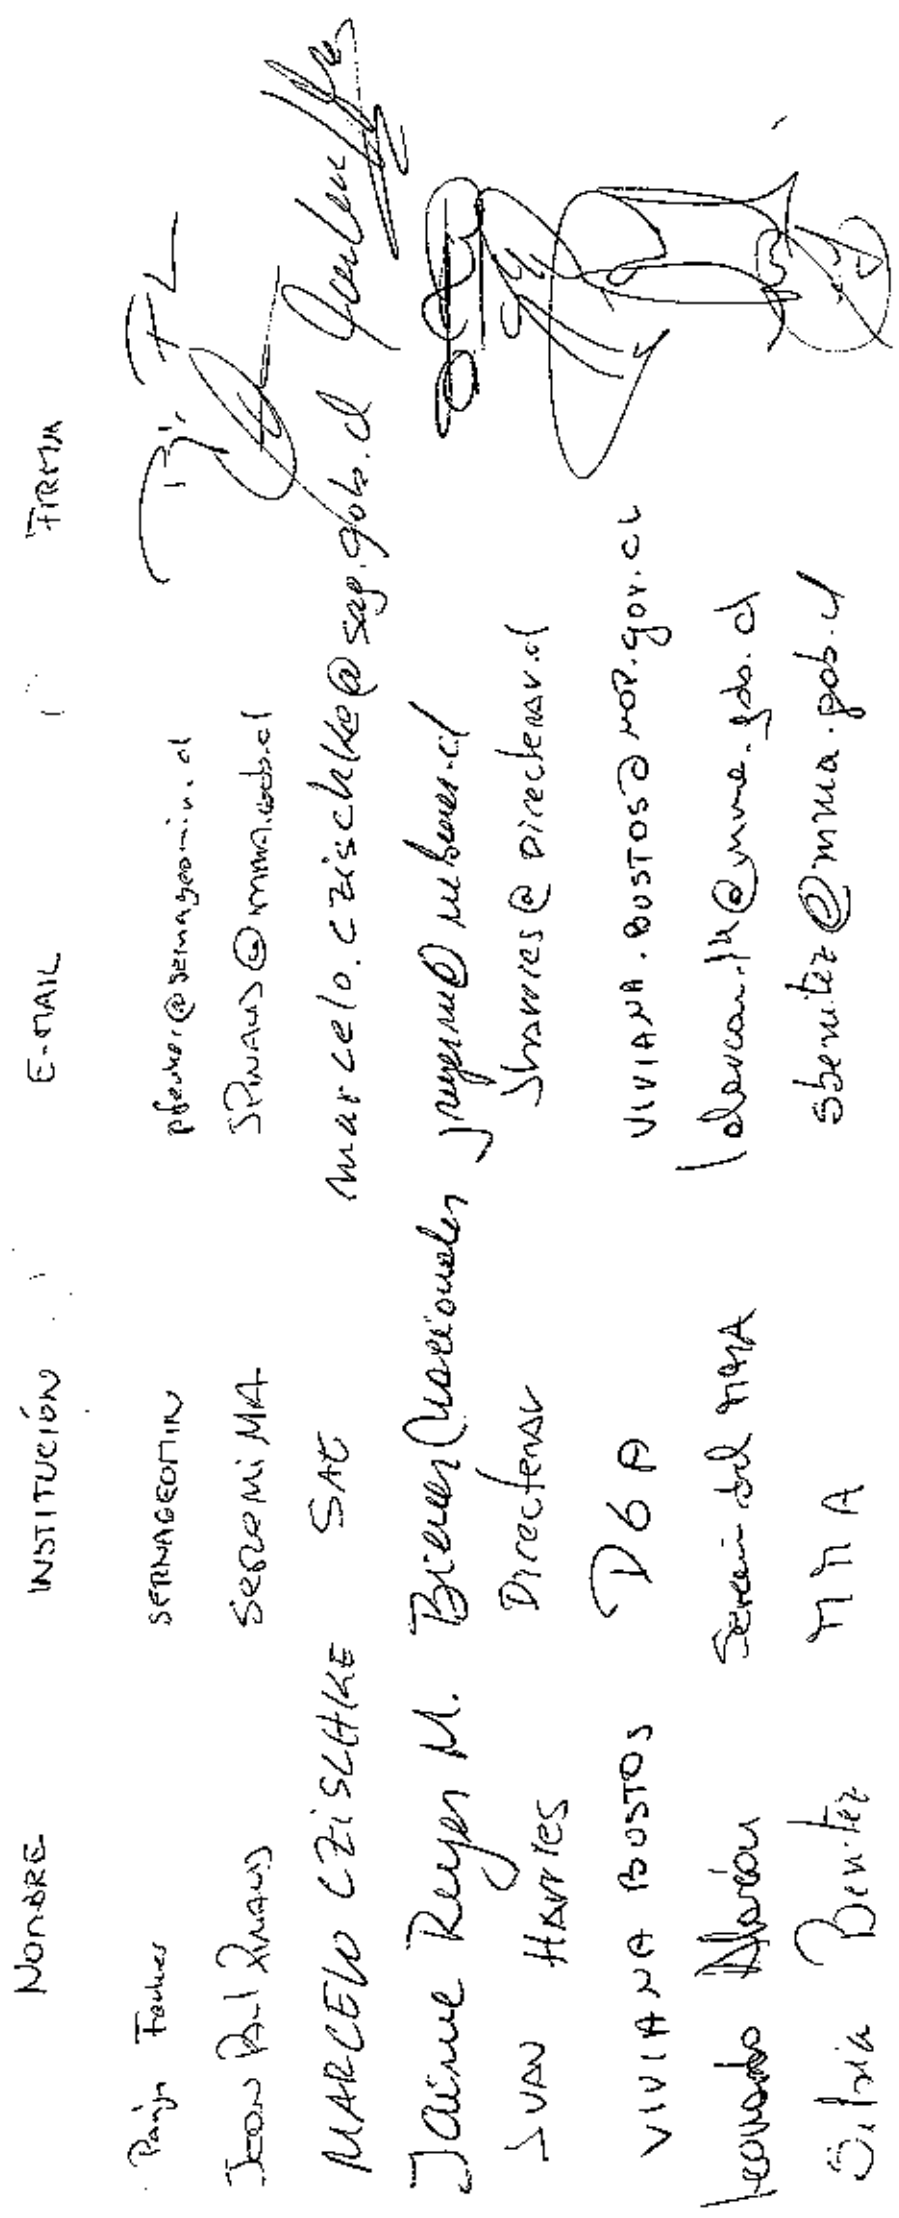 NOMBRE INSTITUCIÓN E-MAIL FIRMA
SERNAGEOMIN @sernageomin.cl
JEAN PAUL PINAUD SEREMI MA JPINAUD@mma.gob.cl
MARCELO CZISCHKE SAG marcelo.czischke@sag.gob.cl
Jaime Reyes M. Bienes Nacionales
JUAN Harries Directemar Jharries@Directemar.cl
VIVIANA BUSTOS DGA VIVIANA.BUSTOS@MOP.gov.cl
Leonardo Alarcón Seremi del MMA
Silvia Benitez MMA sbenitez@mma.gob.cl